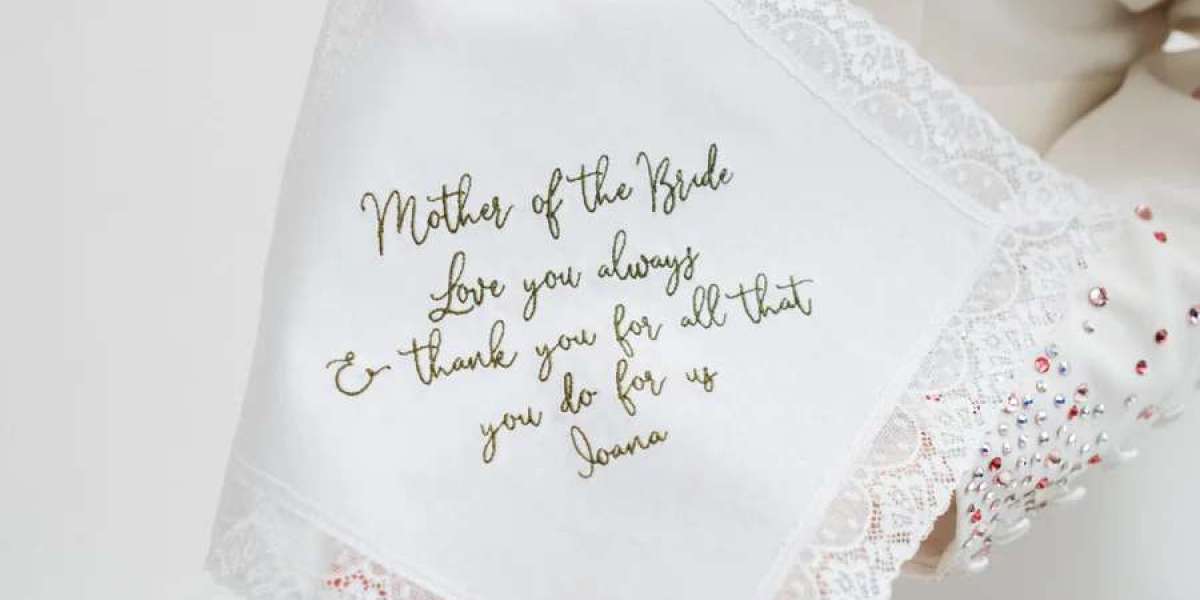 Mother of the Bride
Love you always
& thank you for all that
you do for us
Ioana